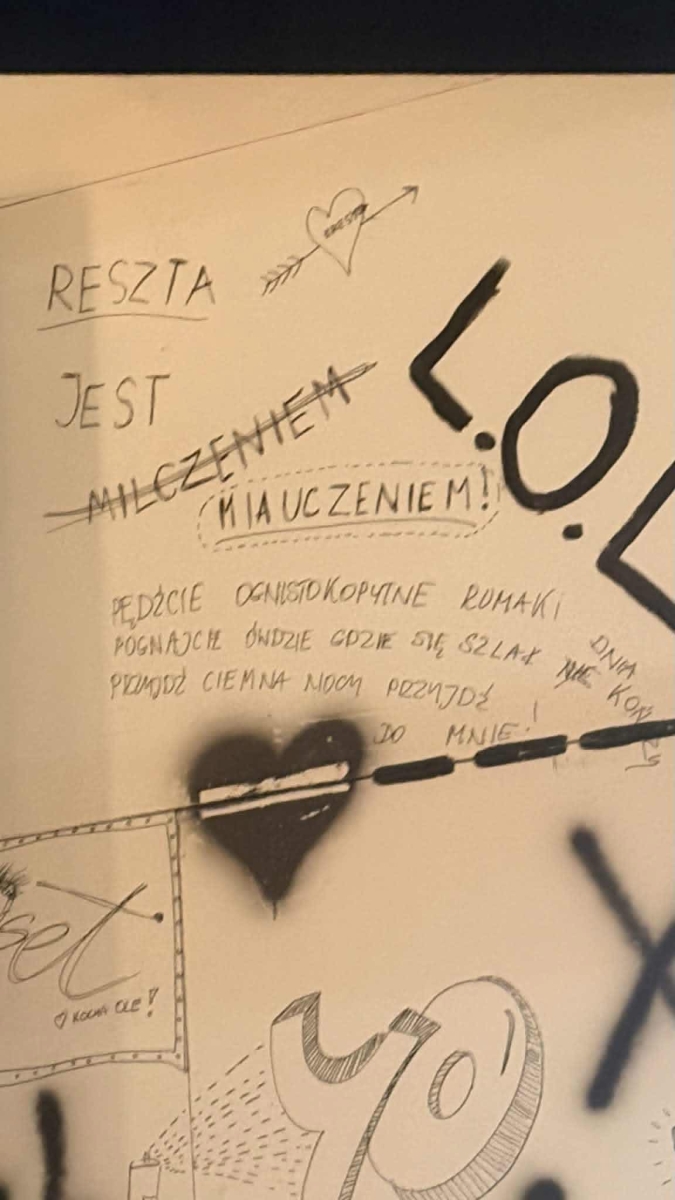 RESZTA
JEST
MILCZENIEM
MIAUCZENIEM!
L.O.L
PĘDŹCIE OGNISTOKOPYTNE RUMAKI
POGNAJCIE ÓWDZIE GDZIE SIĘ SZLAK DNIA KOŃCZY
PRZYJDŹ CIEMNA NOCY PRZYJDŹ
DO MNIE!
set
KOCHA OLE!
YO
X